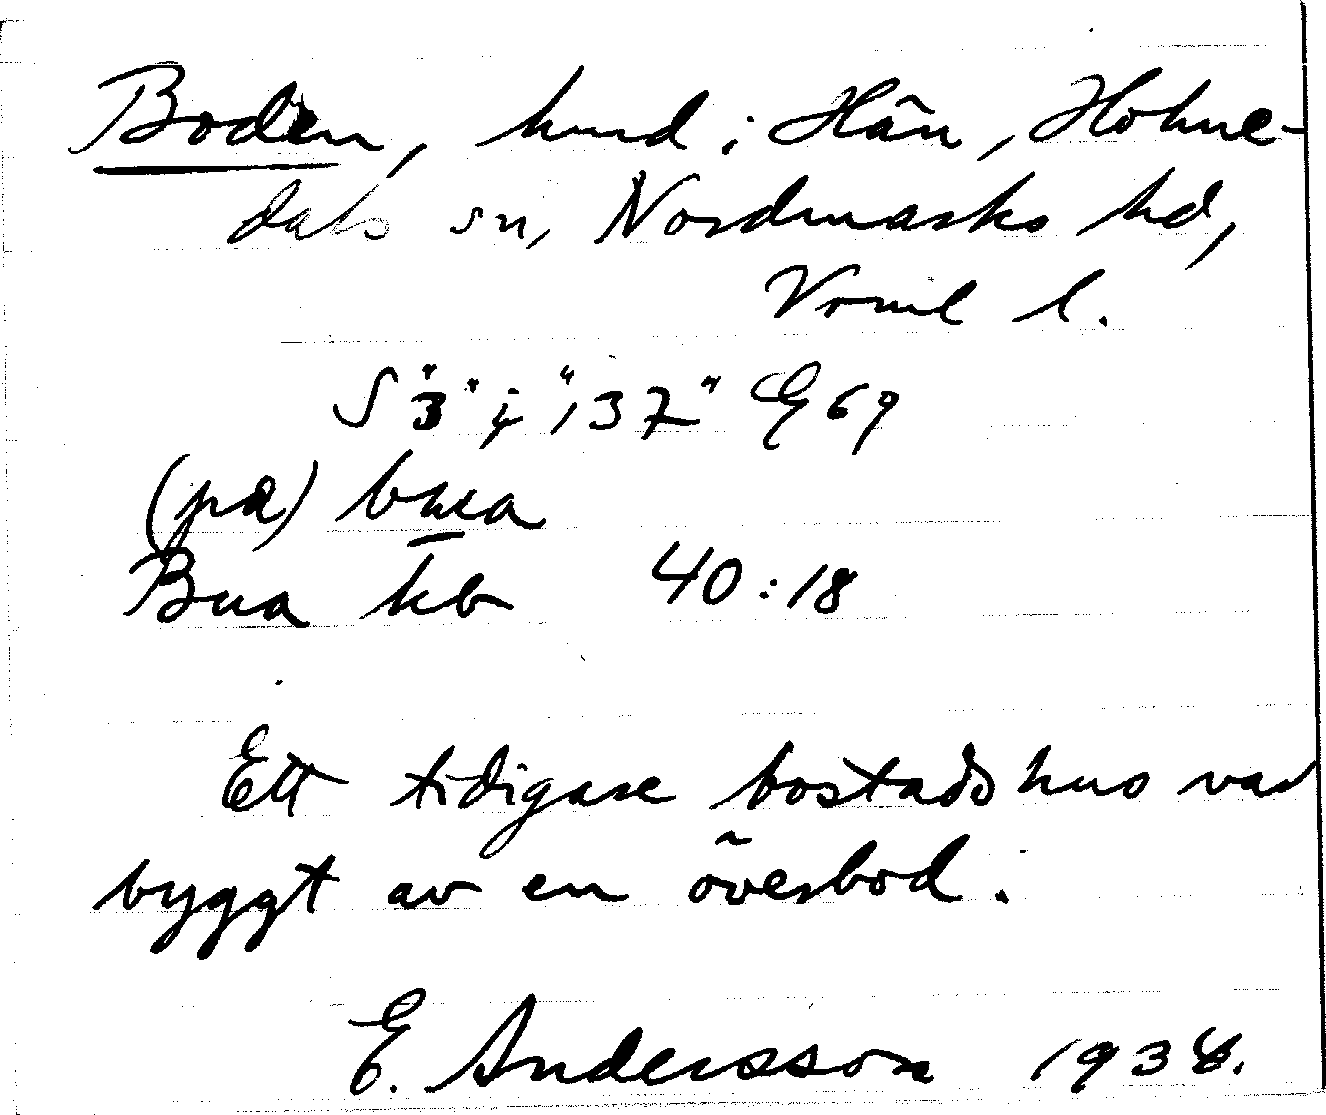 Boden, hmd i Hän, Holme-
dals sn, Nordmarks hd,
Vrml l.
S "3" i "137" E 69
(på) bua
Bua kb 40:18
Ett tidigare bostadshus var
byggt av en överbod.
E. Andersson 1938.